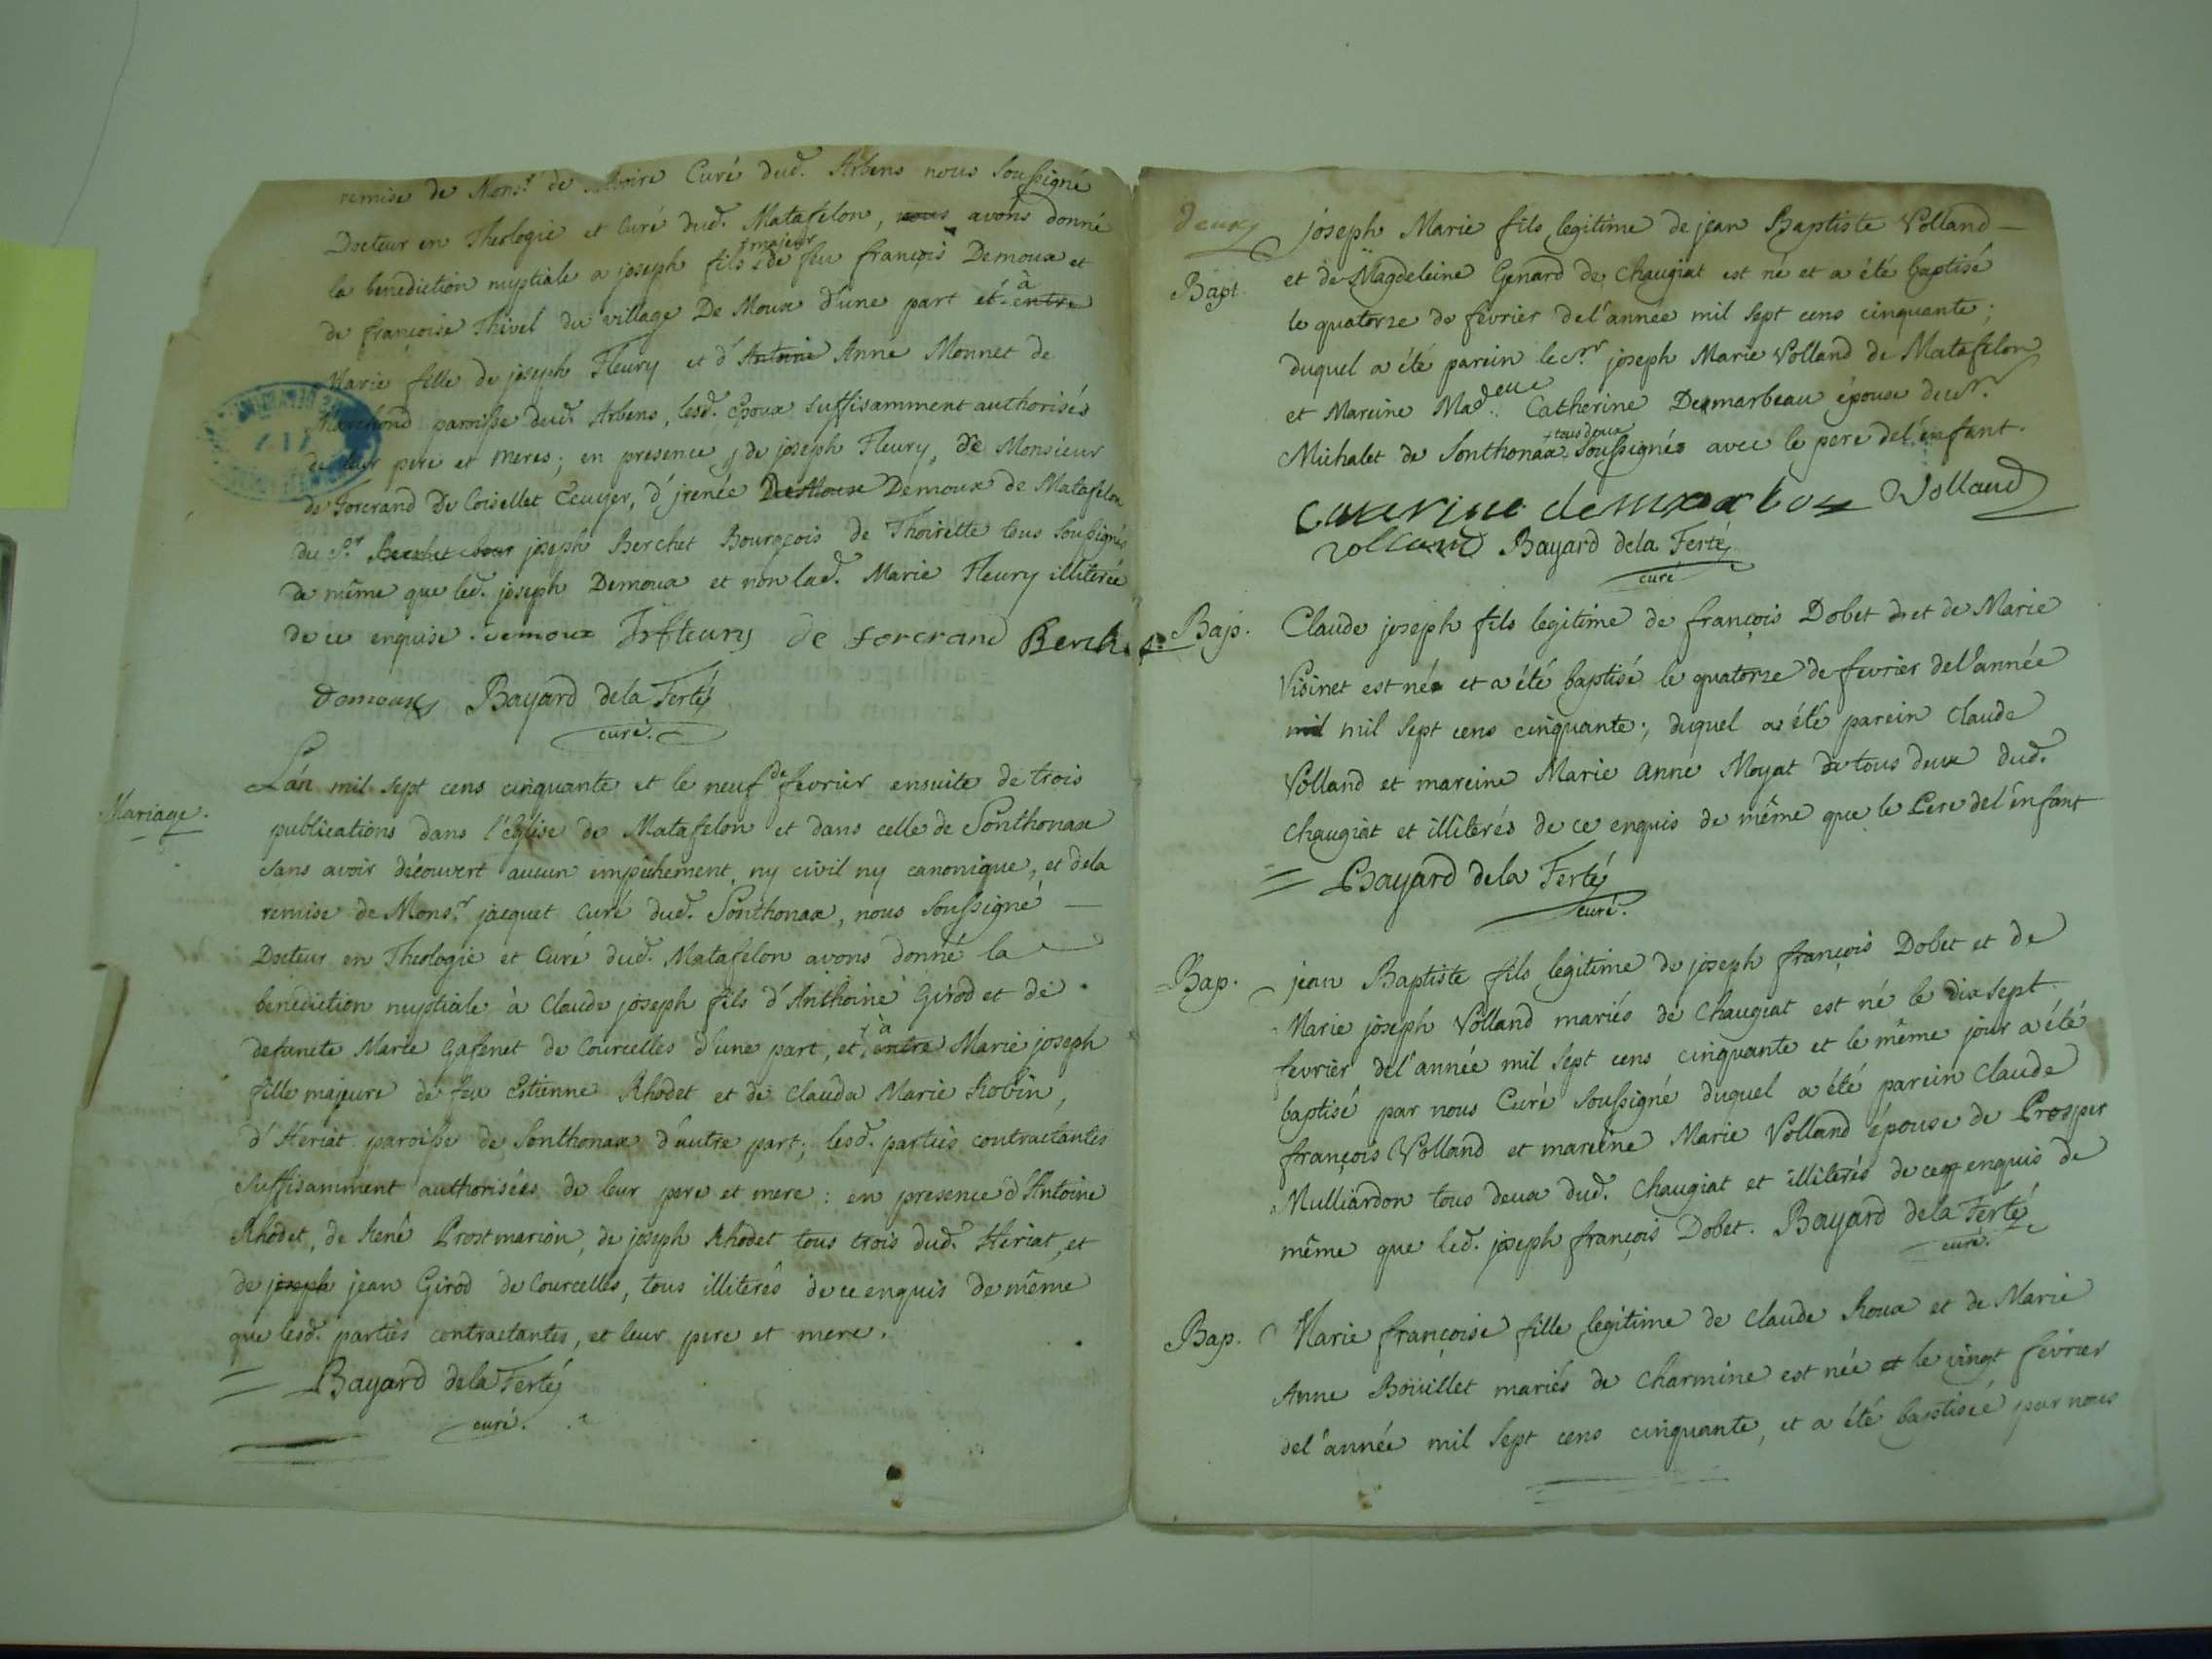 remise de Mons.r de Curé dud. Arbens nous soussigné
Docteur en Theologie et Curé dud. Matafelon, nous avons donné
la benediction nuptiale a joseph fils majeur de feu françois Demoux et
de françoise Thivel du village De Moux d'une part et entre à
Marie fille de joseph Fleury et d'Antoine Anne Monnet de
Marchond paroisse dud. Arbens, lesd. Epoux suffisamment authorisés
de leur pere et meres; en presence de joseph Fleury, de Monsieur
de Forcrand De Coisellet Ecuyer, d'jrenée DeMoux Demoux de Matafelon
du S.r Berchet joseph Berchet Bourgeois de Thoirette tous soussignés
de même que led. joseph Demoux et non lad. Marie Fleury illiterée
de ce enquise. Demoux Fleury de forcrand Berchet
demoux Bayard dela Ferté
curé.
Mariage.
L'an mil sept cens cinquante et le neuf de fevrier ensuite de trois
publications dans l'église de Matafelon et dans celle de Sonthonax
sans avoir découvert aucun empéchement ny civil ny canonique, et dela
remise de Mons.r jacquet curé dud. Sonthonax, nous soussigné
Docteur en Theologie et Curé dud. Matafelon avons donné la
benediction nuptiale à Claude joseph fils d'Anthoine Girod et de
defuncte Marie Gafenet de Courcelles d'une part, et à entre Marie joseph
fille majeure de feu Estienne Rhodet et de Clauda Marie Robin,
d'Heriat paroisse de Sonthonax d'autre part; lesd. parties contractantes
suffisamment authorisées de leur pere et mere: en presence d'Antoine
Rhodet, de René Prost marion, de joseph Rhodet tous trois dud. Heriat, et
de joseph jean Girod de Courcelles, tous illiterés de ce enquis de même
que lesd. parties contractantes, et leur pere et mere.
Bayard dela Ferté
curé.
deux
Bapt.
joseph Marie fils legitime de jean Baptiste Volland
et de Magdeleine Genard de Chaugiat est né et a été baptisé
le quatorze de fevrier de l'année mil sept cens cinquante;
duquel a été parein le S.r joseph Marie Volland de Matafelon
et Mareine Mad.elle Catherine Demarbeau épouse du S.r
Michalet de Sonthonax tous deux soussignés avec le pere de l'enfant.
Volland
volland Bayard dela Ferté
curé
Bap.
Claude joseph fils legitime de françois Dobet et de Marie
Visinet est né et a été baptisé le quatorze de fevrier de l'année
mil mil sept cens cinquante; duquel a été parein Claude
Volland et mareine Marie Anne Moyat de tous deux dud.
Chaugiat et illiterés de ce enquis de même que le Pere de l'enfant
Bayard dela Ferté
curé.
Bap.
jean Baptiste fils legitime de joseph françois Dobet et de
Marie joseph Volland mariés de Chaugiat est né le dix sept
fevrier de l'année mil sept cens cinquante et le même jour a été
baptisé par nous Curé soussigné duquel a été parein Claude
françois Volland et mareine Marie Volland épouse de Prosper
Mulliardon tous deux dud. Chaugiat et illiterés de ce enquis de
même que led. joseph françois Dobet. Bayard dela Ferté
curé.
Bap.
Marie françoise fille legitime de Claude Roux et de Marie
Anne Boüillet mariés de Charmine est née et le vingt fevrier
de l'année mil sept cens cinquante, et a été baptisée par nous